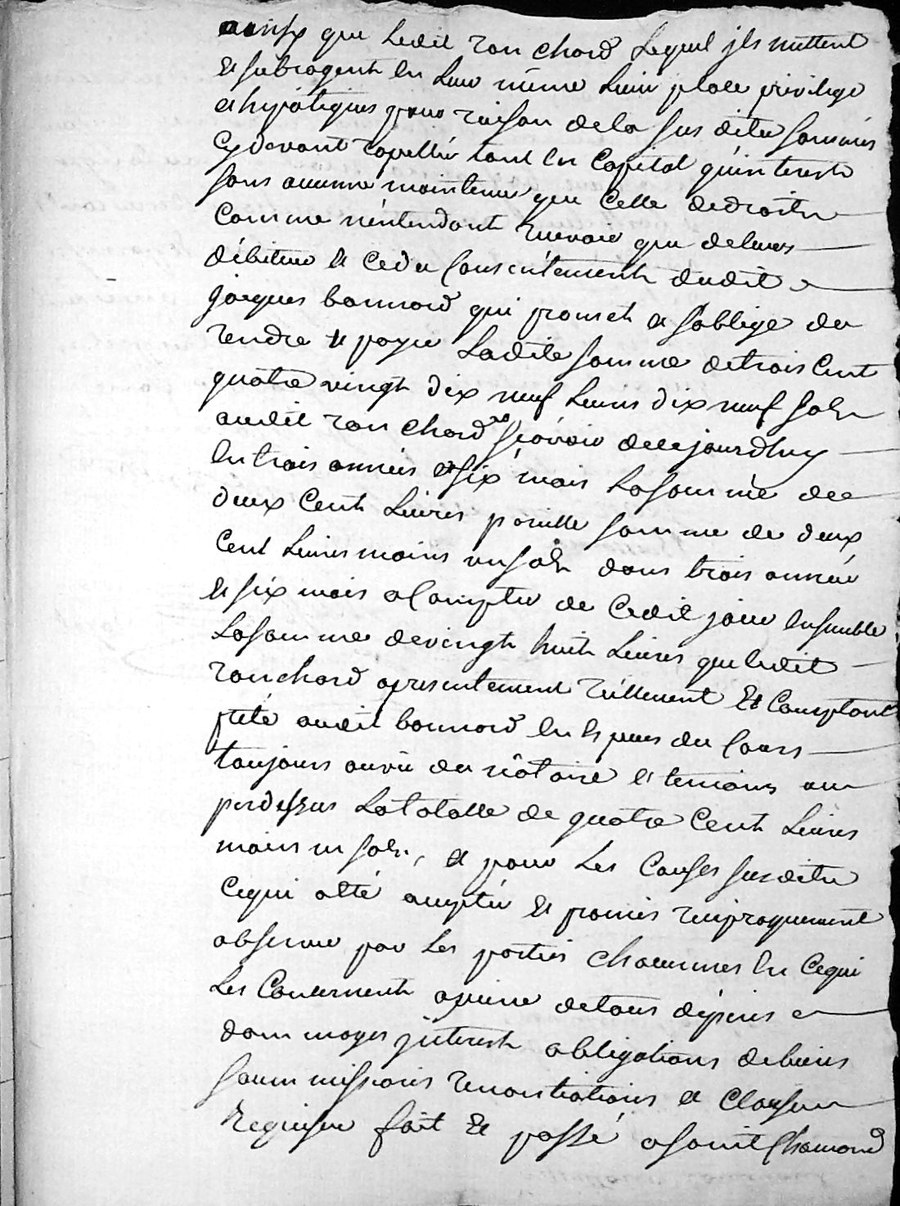 que ledit ronchard lequel jls mettent
et subrogent en leur même lieu place privilege
et hÿpotêques pour raison de la sus ditte somme
cy devant rapellée tant en capital qu'interest
sans aucune maintenue que celle de droit
comme n'entendant recevoir que de leurs
débiteur et ce du consentement dudit
jacques bonnard qui promet et s'obblige de
rendre et payer ladite somme de trois cent
quatre vingt dix neuf livres dix neuf sols
audit ronchard sçavoir de ce jourdhuy
en trois années et six mois la somme de
deux cent livres pareille somme de deux
cent livres moins un sols dans trois année
et six mois a compter de cedit jour ensemble
la somme de vingt huit livres que ledit
ronchard a presentement réellement et comptant
prété audit bonnard en espèces du cours
toujours a vû du nôtaire et temoins
par dessus la totalle de quatre cent livres
moins un sols, et pour les causes susdites
ce qui a été accepté et promis reciproquement
observer par les parties chacunnes en ce qui
les concernent a peine de tous dépens
dommages jnterest obligations de biens
soummissions renontiations et clauses
requises fait et passé a saint Chamond